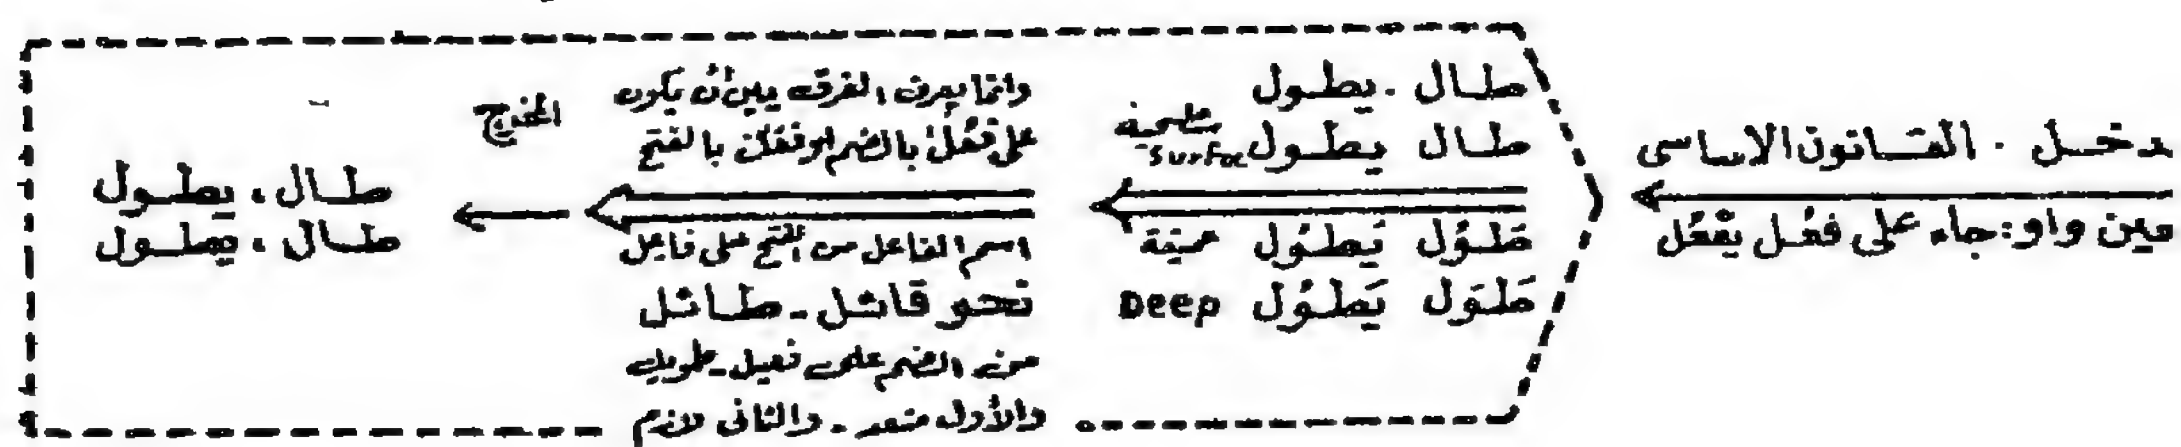 مدخل . القانون الاساسى
عين واو: جاء على فعُل يفْعُل
طال . يطول
طال يطول سطحية Surface
طَوُل يَطوُل عميقة
طَوَل يَطوُل Deep
وانما يعرف الفرق بين أن يكون
على فَعُلَ بالضم او فَعَلَ بالفتح
اسم الفاعل من الفتح على فاعل
نحو قائل - طائل
من الضم على فعيل - طويل
والأول متعد - والثانى لازم
المخرج
طال ، يطول
طال ، يطول